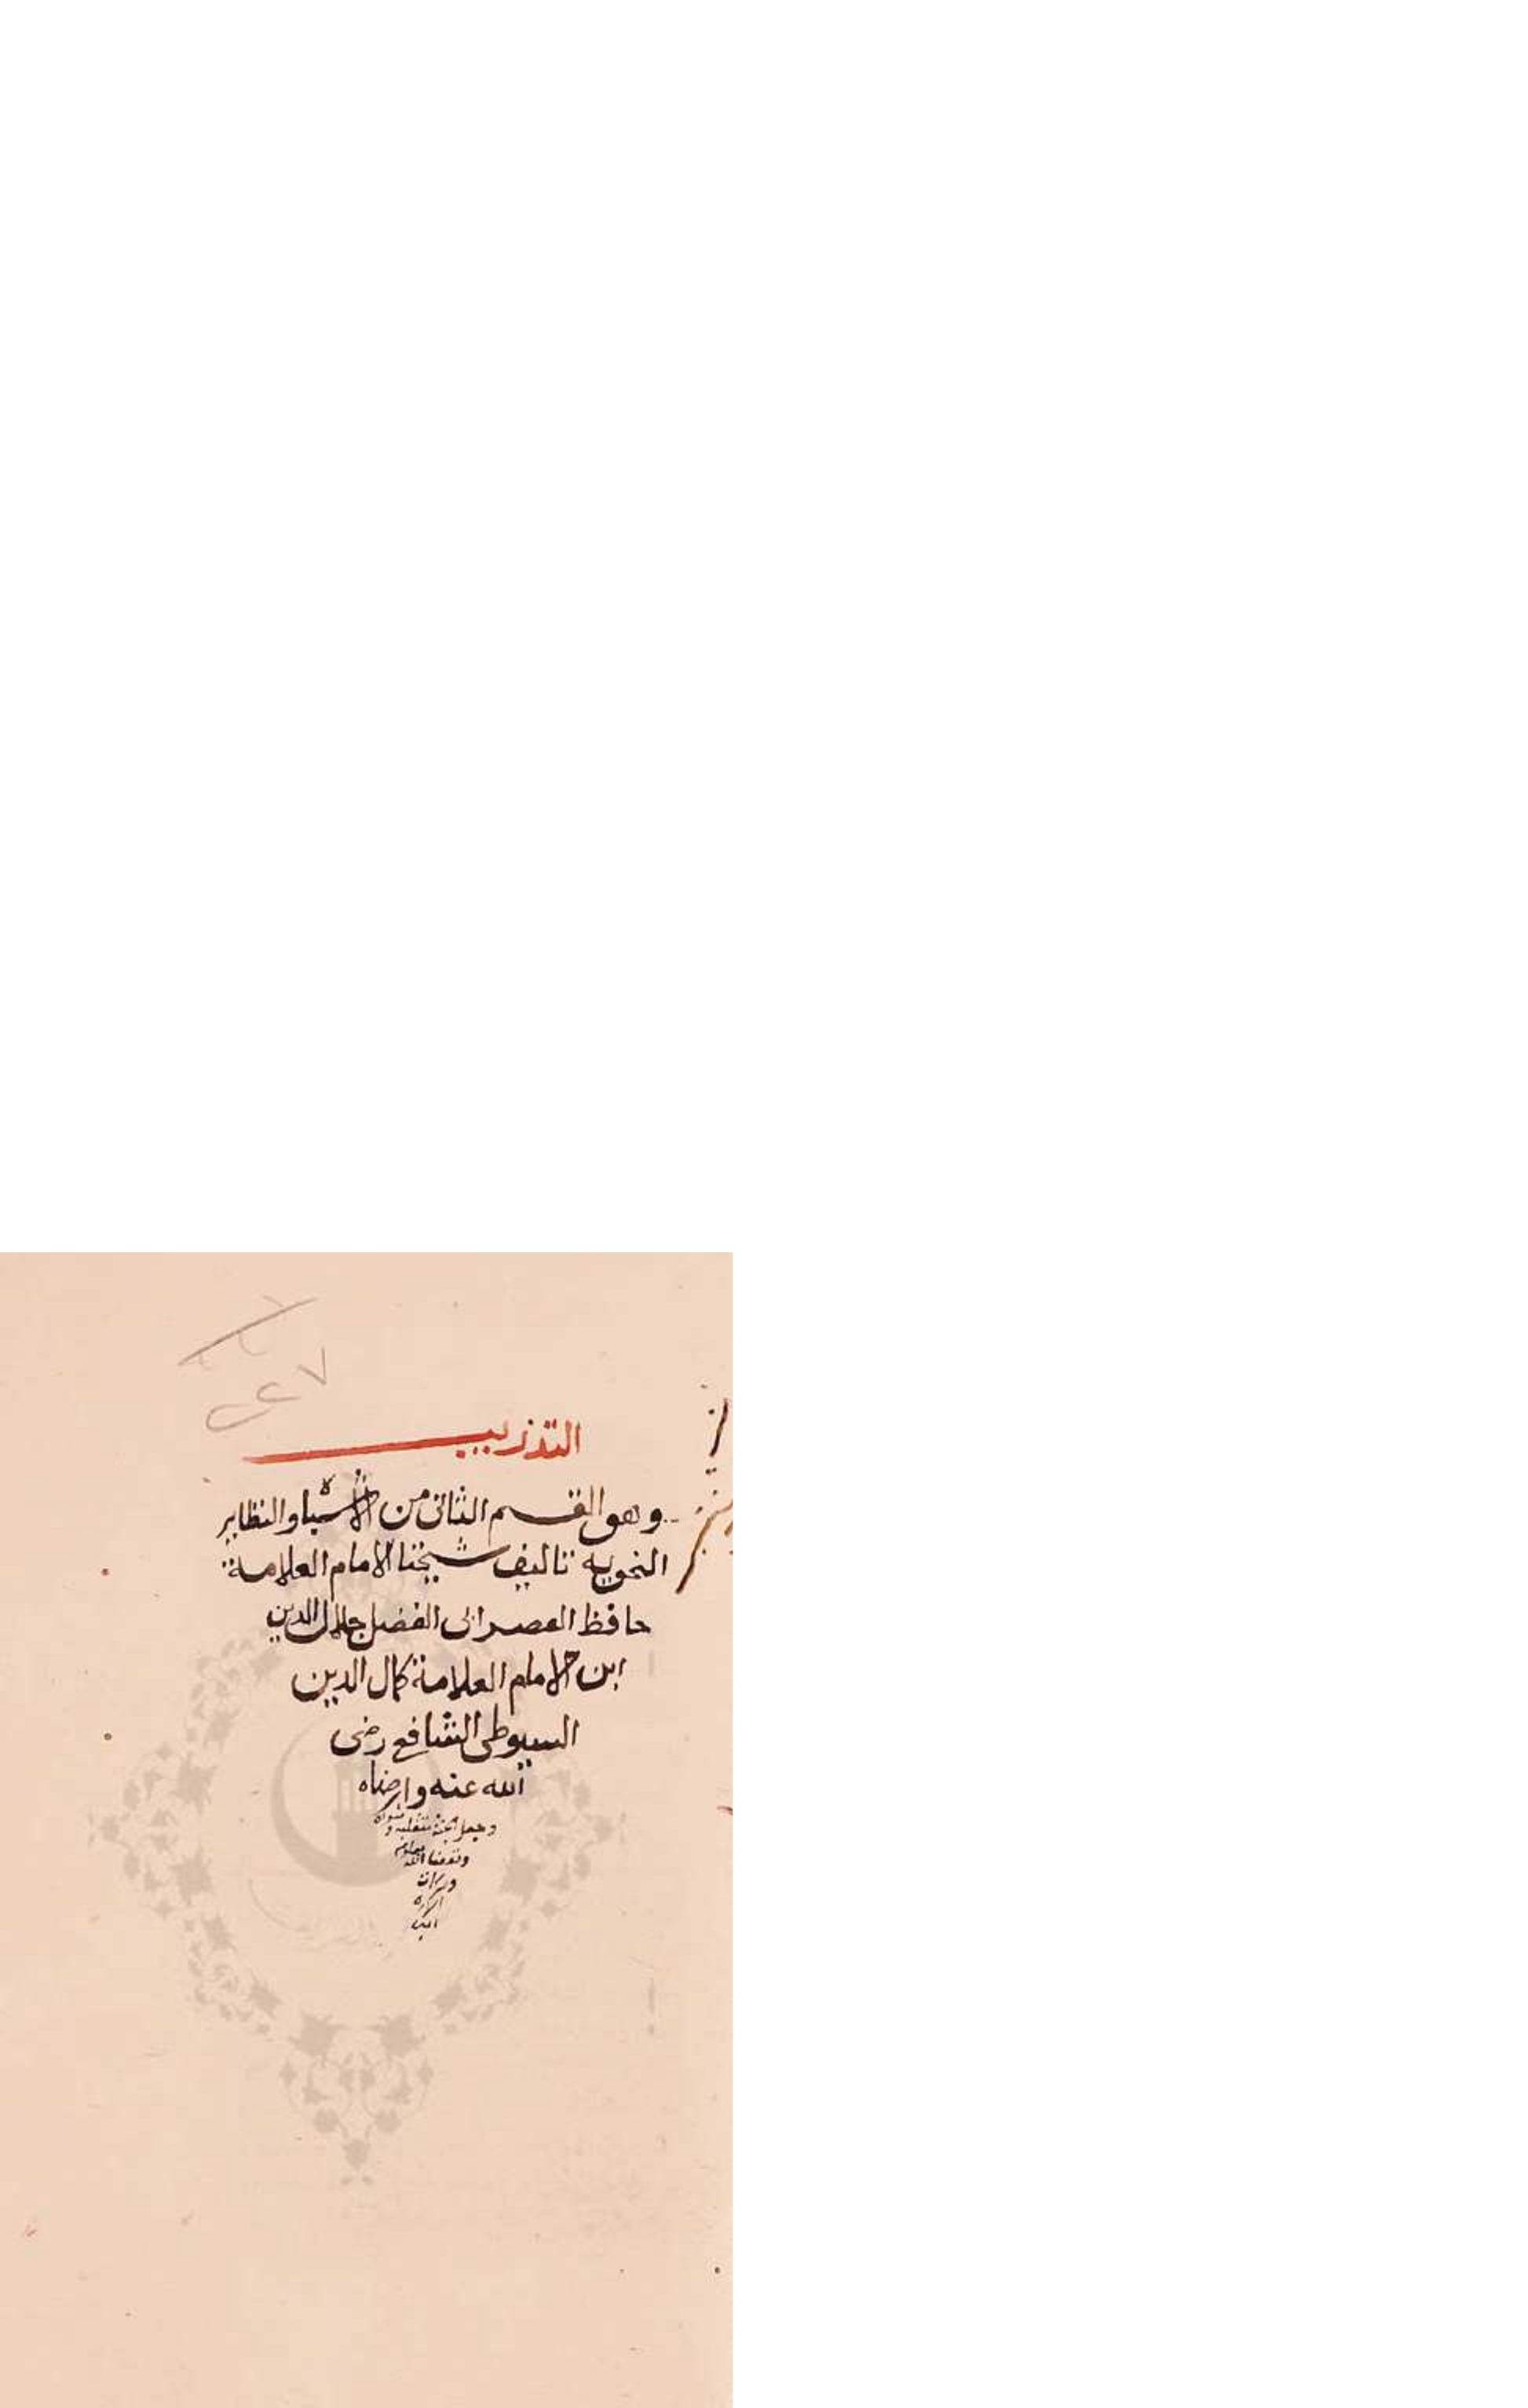 ٢٤٧
التدريب
وهو القسم الثانى من الأشباه والنظاير
النحويه تاليف شيخنا الامام العلامة
حافظ العصر ابى الفضل جلال الدين
ابن الامام العلامة كمال الدين
السيوطى الشافعى رضى
الله عنه وارضاه
وجعل الجنة متقلبه ومثواه
ونفعنا الله بعلومه
وبركاته